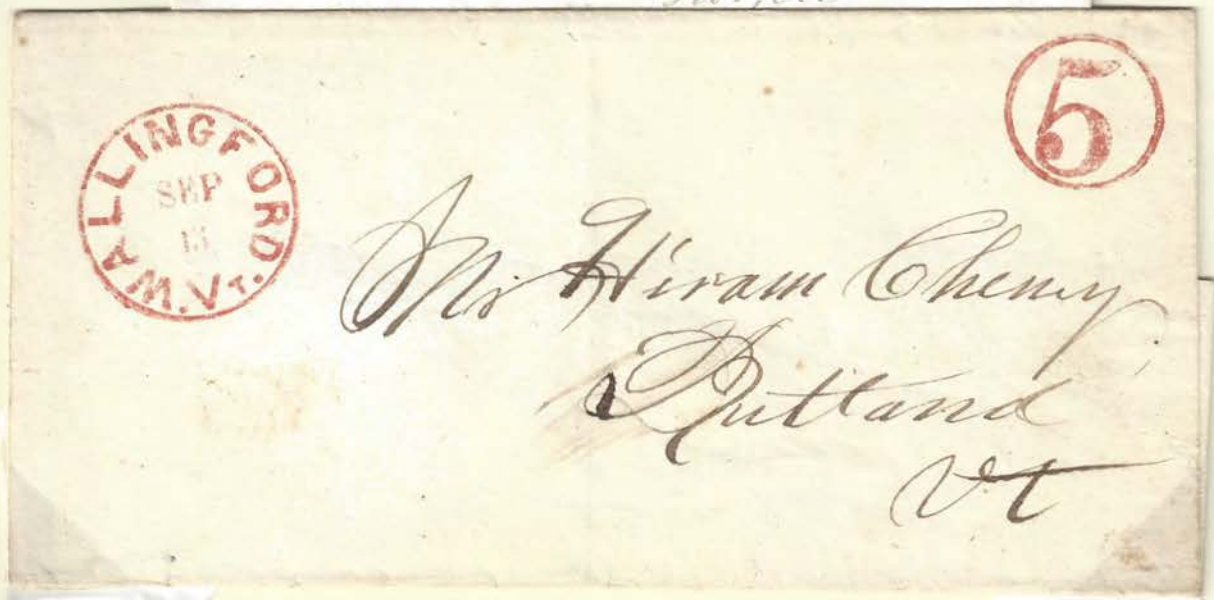 WALLINGFORD.
M.VT.
SEP
13
5
Mr Hiram Cheney
Rutland
Vt